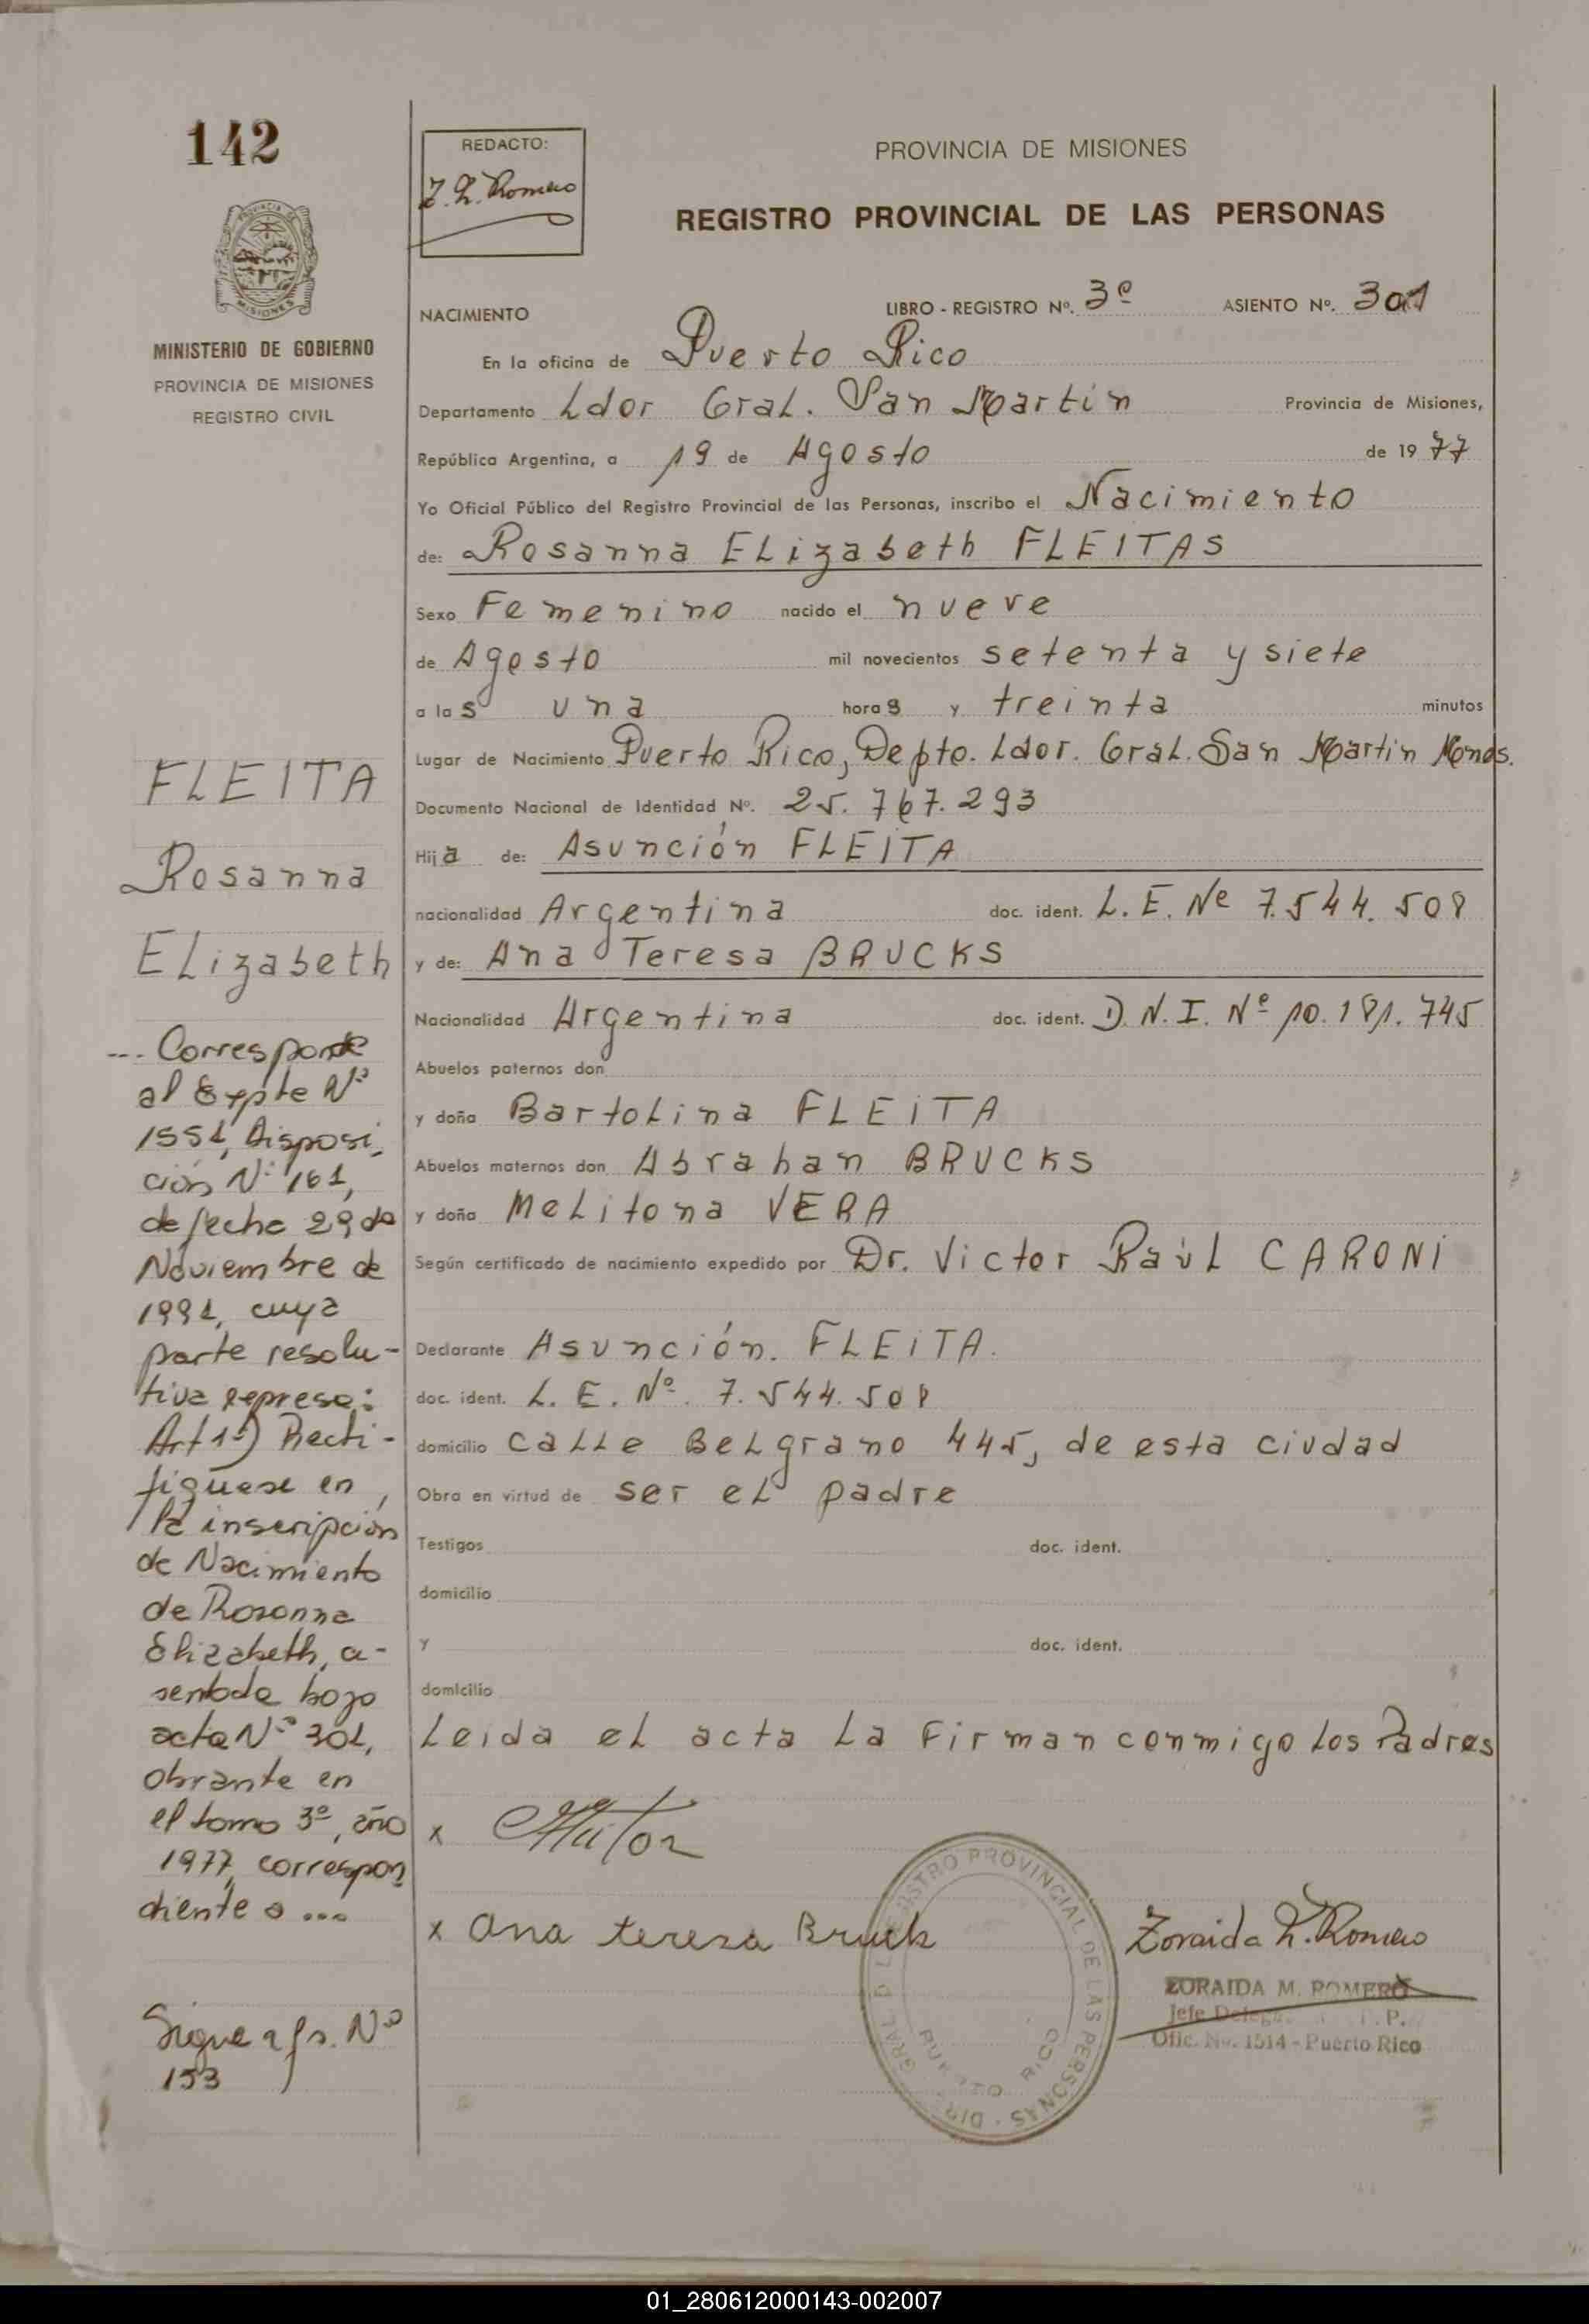 142
REDACTO:
Z. M. Romero
PROVINCIA DE MISIONES
REGISTRO PROVINCIAL DE LAS PERSONAS
MISIONES
MINISTERIO DE GOBIERNO
PROVINCIA DE MISIONES
REGISTRO CIVIL
NACIMIENTO LIBRO - REGISTRO Nº. 3º ASIENTO Nº. 301
En la oficina de Puerto Rico
Departamento Ldor Gral. San Martin Provincia de Misiones,
República Argentina, a 19 de Agosto de 1977
Yo Oficial Público del Registro Provincial de las Personas, inscribo el Nacimiento
de: Rosanna Elizabeth FLEITAS
Sexo Femenino nacido el nueve
de Agosto mil novecientos setenta y siete
a las una horas y treinta minutos
Lugar de Nacimiento Puerto Rico, Depto. Ldor. Gral. San Martin Mnes.
Documento Nacional de Identidad Nº. 25.767.293
Hija de: Asunción FLEITA
nacionalidad Argentina doc. ident. L.E. Nº 7.544.508
y de: Ana Teresa BRUCKS
Nacionalidad Argentina doc. ident. D.N.I. Nº 10.181.745
Abuelos paternos don
y doña Bartolina FLEITA
Abuelos maternos don Abrahan BRUCKS
y doña Melitona VERA
Según certificado de nacimiento expedido por Dr. Victor Raúl CARONI
Declarante Asunción. FLEITA.
doc. ident. L.E. Nº. 7.544.508
domicilio calle Belgrano 445, de esta ciudad
Obra en virtud de ser el padre
Testigos doc. ident.
domicilio
y doc. ident.
domicilio
Leida el acta la Firman conmigo los Padres
x
x Ana teresa Bruck
Zoraida M. Romero
ZORAIDA M. ROMERO
Jefe P.
Ofic. No. 1514 - Puerto Rico
REGISTRO PROVINCIAL DE LAS PERSONAS - DIR. GRAL. D L
PUERTO RICO
FLEITA
Rosanna
Elizabeth
--- Corresponde
al Expte Nº
1551, Disposi-
ción Nº 161,
de fecha 29 de
Noviembre de
1991, cuya
parte resolu-
tiva expresa:
Art 1º) Recti-
fíquese en
la inscripción
de Nacimiento
de Rosanna
Elizabeth, a-
sentada bajo
acta Nº 301,
obrante en
el tomo 3º, año
1977, correspon
diente a ...
Sigue a fs. Nº
153
01_280612000143-002007